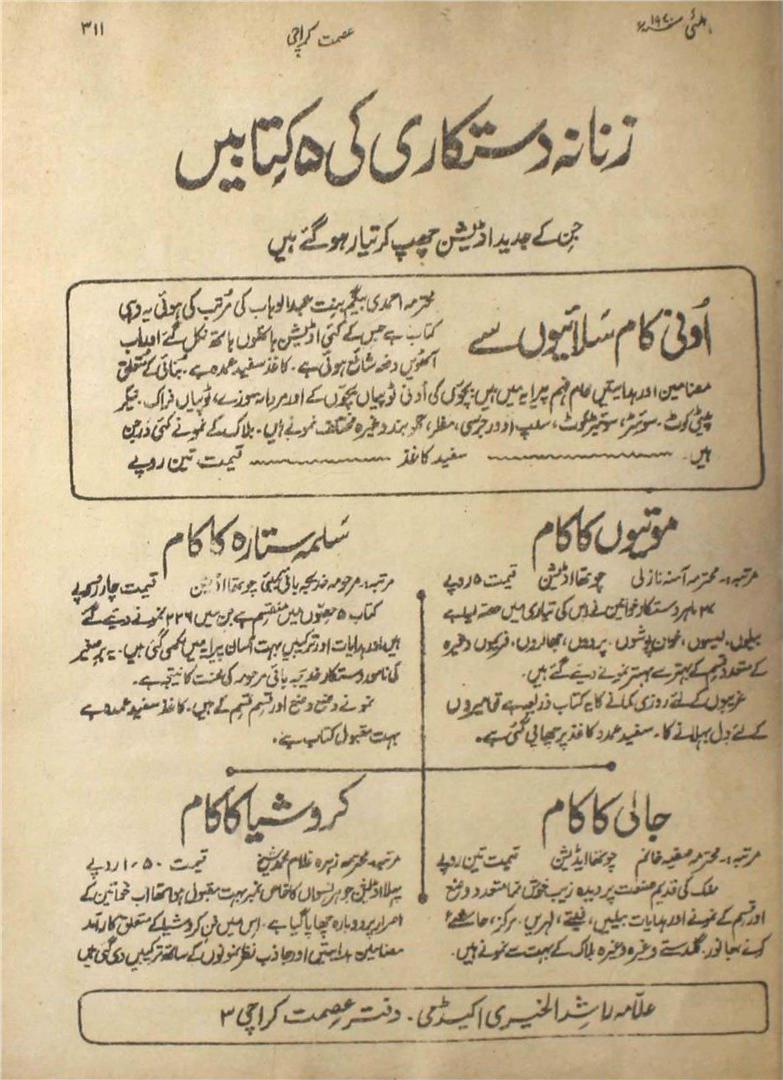 مئی ۱۹۷۰ء
عصمت کراچی
۳۱۱
زنانہ دستکاری کی ۵ کتابیں
جن کے جدید اڈیشن چھپ کر تیار ہو گئے ہیں
اُونی کام سَلائیوں سے
محترمہ احمدی بیگم بنت عبدالوہاب کی مُرتب کی ہوئی یہ وہی
کتاب ہے جس کے کئی اڈیشن ہاتھوں ہاتھ نکل گئے اور اب
آٹھویں دفعہ شائع ہوئی ہے۔ کاغذ سفید عمدہ ہے۔ بُنائی کے متعلق
مضامین اور ہدایتیں عام فہم پیرایہ میں ہیں بچوں کی اُونی ٹوپیاں بچوں کے اور مردانہ موزے، ٹوپیاں فراک۔ نیکر
پیٹی کوٹ۔ سوئٹر، سوئیٹر کوٹ، سلپ اوور جرسی، مفلر، گلو بند وغیرہ مختلف نمونے ہیں۔ بلاک کے نمونے کئی درجن
ہیں۔ سفید کاغذ قیمت تین روپے
موتیوں کا کام
مرتبہ:۔ محترمہ آمنہ نازلی چوتھا اڈیشن قیمت ۵ روپے
۲۷ ماہر دستکار خواتین نے اس کی تیاری میں حصہ لیا ہے
بیلوں، لیسوں، خوان پوشوں۔ پردوں، جھالروں۔ فریموں وغیرہ
کے متعدد قسم کے بہتر سے بہتر نمونے دیئے گئے ہیں۔
غریبوں کے لئے روزی کمانے کا یہ کتاب ذریعہ ہے تو امیروں
کے لئے دل بہلانے کا۔ سفید عمدہ کاغذ پر چھاپی گئی ہے۔
سَلمہ ستارہ کا کام
مرتبہ:۔ مرحومہ خدیجہ بائی چوتھا اڈیشن قیمت چار روپے
کتاب ۵ حصوں میں منقسم ہے جن میں ۲۳۶ نمونے دیئے گئے
ہیں اور ہدایات اور ترکیبیں بہت آسان پیرایہ میں لکھی گئی ہیں۔ یہ برصغیر
کی نامور دستکار خدیجہ بائی مرحومہ کی محنت کا نتیجہ ہے۔
نمونے وضع وضع اور قسم قسم کے ہیں۔ کاغذ سفید عمدہ ہے
بہت مقبول کتاب ہے۔
جالی کا کام
مرتبہ:۔ محترمہ صغیہ خانم چوتھا ایڈیشن قیمت تین روپے
ملک کی قدیم صنعت پر دیدہ زیب خوش نما متعدد وضع
اور قسم کے نمونے اور ہدایات بیلیں، فیتے، لہریں۔ مرکز، حاشیے،
کونے جانور۔ گلدستے وغیرہ وغیرہ بلاک کے بہت سے نمونے ہیں۔
کروشیا کا کام
مرتبہ:۔ محترمہ زہرہ غلام محمد شیخ قیمت ۱٫۵۰ روپے
پہلا اڈیشن جوہر نسواں کا خاص نمبر بہت مقبول ہوا تھا اب خواتین کے
اصرار پر دوبارہ چھاپا گیا ہے۔ اس میں فن کروشیا کے متعلق کارآمد
مضامین ہدایتیں اور جاذب نظر نمونوں کے ساتھ ترکیبیں دی گئی ہیں
علّامہ راشد الخیری اکیڈمی۔ دفتر عصمت کراچی ۳